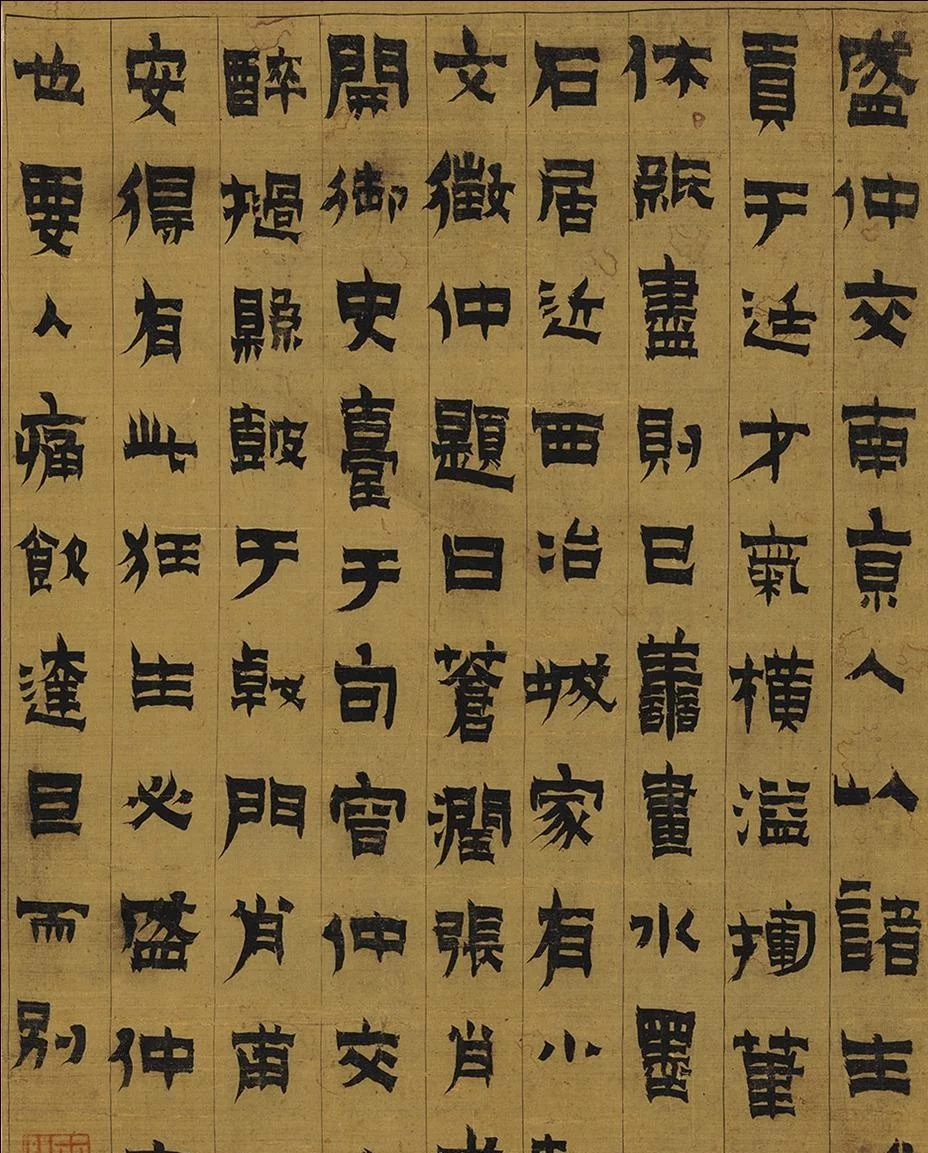 盛仲交南京人以諸生
貢于廷才氣橫溢揮筆
休紙盡則已譱畫水墨
石居近西冶城家有小
文徵仲題曰蒼潤張肖
開御史臺于句容仲交
醉撾縣鼓于戟門肖甫
安得有此狂生必盛仲
也要入痛飲達旦而別